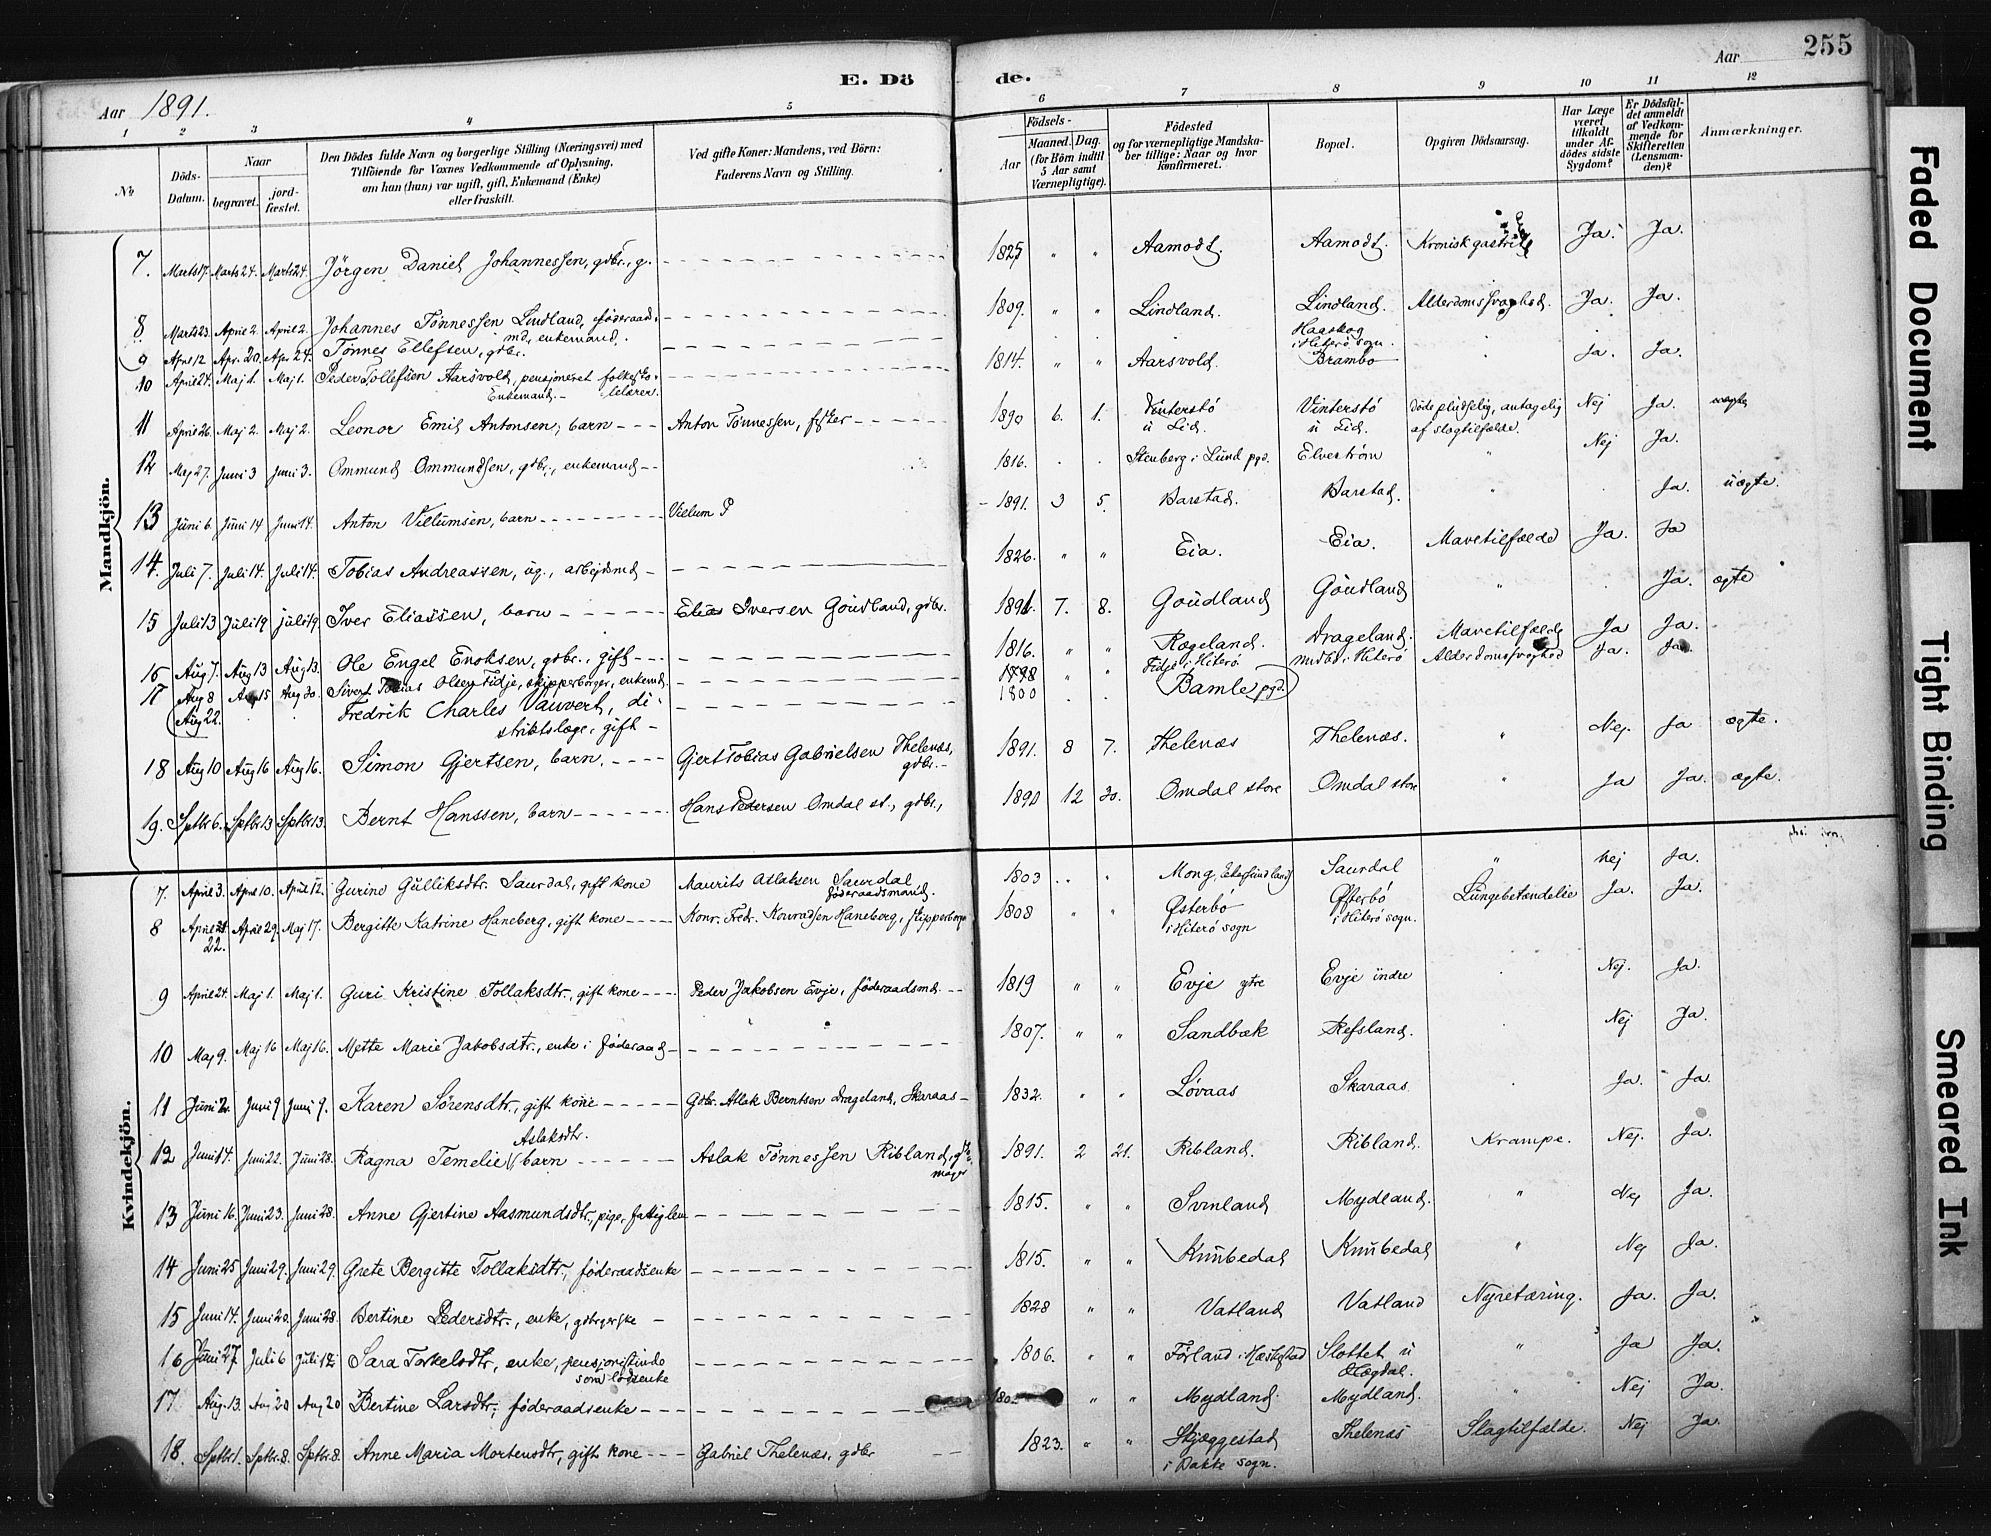 255
E. Dö de.
Aar 1891.
Aar
1 2 3 4 5 6 7 8 9 10 11 12
No
Döds-Datum.
Naar
begravet.
jord-fæstet.
Den Dödes fulde Navn og borgerlige Stilling (Næringsvei) med
Tilföiende for Voxnes Vedkommende af Oplysning,
om han (hun) var ugift, gift, Enkemand (Enke)
eller fraskilt.
Ved gifte Koner: Mandens, ved Börn:
Faderens Navn og Stilling.
Födsels-
Aar
Maaned. Dag.
(for Börn indtil
5 Aar samt
Værnepligtige).
Födested
og for værnepligtige Mandska-
ber tillige: Naar og hvor
konfirmeret.
Bopæl.
Opgiven Dödsaarsag.
Har Læge
været
tilkaldt
under Af-
dödes sidste
Sygdom?
Er Dödsfal-
det anmeldt
af Vedkom-
mende for
Skifteretten
(Lensman-
den)?
Anmærkninger.
Mandkjön.
7. Marts 17. Marts 24. Marts 24. Jörgen Daniel Johannessen, gdbr., g. 1825 " " Aamodt. Aamodt. Kronisk gastrit Ja. Ja.
8 Marts 23. April 2. April 2. Johannes Tönnessen Lindland, föderaads
md, enkemand. 1809. " " Lindland. Lindland. Alderdomssvaghed. Ja. Ja.
9 April 12 Apr. 20. Apr. 24. Tönnes Ellefsen, gdbr. Haaskog
i Hiterö sogn.
10 April 24. Maj 1. Maj 1. Peder Tollefsen Aarsvold, pensjoneret folkesko-
lelærer. Enkemand. 1814. " " Aarsvold. Brambo Ja. Ja.
11 April 26. Maj 2. Maj 2. Leonor Emil Antonsen, barn Anton Tönnessen, fisker 1890 6. 1. Vinterstö
u Eid. Vinterstö
u Eid. döde pludselig, antagelig
af slagtilfælde. Nej Ja. uægte
12 Maj 27. Juni 3 Juni 3. Ommund Ommundsen, gdbr., enkemand 1816. Stenberg i Lund pgd. Elveström " Nej Ja.
13 Juni 6. Juni 14 Juni 14. Anton Villumsen, barn Vielum P 1891. 3 5. Barstad. Barstad. " Ja. uægte.
14. Juli 7. Juli 14. Juli 14. Tobias Andreassen, ug., arbejdsmd 1826. " " Eia. Eia. Mavetilfælde Ja. Ja
15 Juli 13 Juli 19 juli 19. Iver Eliassen, barn Elias Iversen Goudland, gdbr. 1891. 7. 8. Goudland Goudland " Ja. ægte
16 Aug. 7. Aug 13 Aug 13. Ole Engel Enoksen, gdbr., gift 1816. " " Rægeland. Drageland. Mavetilfælde Ja Ja.
17 Aug 8 Aug 15 Aug 30. Sivert Tobias Olsen Tidje, skipperborger, enkemd. 1798 " " Tidje i Hiterö Midbö i Hiterö Alderdomssvaghed Ja. Ja.
(Aug 22. Fredrik Charles Vauvert, di-
striktslæge, gift 1800 Bamle pgd.)
18 Aug 10 Aug 16 Aug 16. Simon Gjertsen, barn. Gjert Tobias Gabrielsen Thelenæs,
gdbr. 1891. 8 7. Thelenæs Thelenæs. " Nej. Ja ægte.
19. Sptbr 6. Sptbr 13 Sptbr 13. Bernt Hanssen, barn Hans Pedersen Omdal st., gdbr., 1890 12 30. Omdal store Omdal store " Ja Ja. ægte.
Kvindekjön.
7. April 3. April 10. April 12. Gurine Gulliksdtr. Saurdal, gift kone Maurits Atlaksen Saurdal
föderaadsmand. 1803 . " Mong, Saurdal " Nej Ja.
8 April 22. April 29. Maj 17. Bergitte Katrine Haneberg, gift kone Konr. Fredr. Konradsen Haneberg, skipperborger 1808 " " Østerbö
i Hiterö sogn Østerbö
i Hiterö sogn. Lungebetændelse Ja. Ja.
9 April 24. Maj 1. Maj 1. Guri Kristine Tollaksdtr., gift kone Peder Jakobsen Evje, föderaadsmd. 1819 " " Evje ytre Evje indre Nej. Ja.
10 Maj 9. Maj 16 Maj 16. Mette Marie Jakobsdtr., enke i föderaad 1807. " " Sandbæk Refsland. Nej Ja.
11 Juni 2. Juni 9 Juni 9. Karen Sörensdtr., gift kone Gdbr. Atlak Berntsen Drageland, Skaraas 1832. " " Lövaas Skaraas Ja. Ja.
12 Juni 14. Juni 22. Juni 28. Ragna Temelie Aslaksdtr. barn Aslak Tönnessen Ribland, 1891. 2 21. Ribland. Ribland. Krampe. Nej. Ja.
13 Juni 16. Juni 23. Juni 28. Anne Gjertine Aasmundsdtr., pige, fattiglem 1815. " " Svinland Mydland. " Nej Ja.
14 Juni 25 Juni 29. Juni 29. Grete Bergitte Tollaksdtr., föderaadsenke 1815. " " Knubedal Knubedal " Nej Ja.
15 Juni 14. Juni 20. Juni 28. Bertine Pedersdtr., enke, 1828 " " Vatland Vatland Nyretæring. Ja. Ja.
16 Juni 27 Juli 6 Juli 12 Sara Torkelsdtr, enke, pensjonistinde
som lodsenke 1806. " " Förland i Slottet u
Ja Ja.
17 Aug. 13. Aug 20 Aug 20 Bertine Larsdtr, föderaadsenke " " Mydland. Mydland. " Nej Ja.
18. Sptbr 1. Sptbr. 8. Sptbr. 8. Anne Maria Mortensdtr, gift kone Gabriel Thelenæs, gdbr 1823. " " Skjæggestad
i Bakke sogn. Thelenæs Slagtilfælde. Nej Ja.
Faded Document
Tight Binding
Smeared Ink